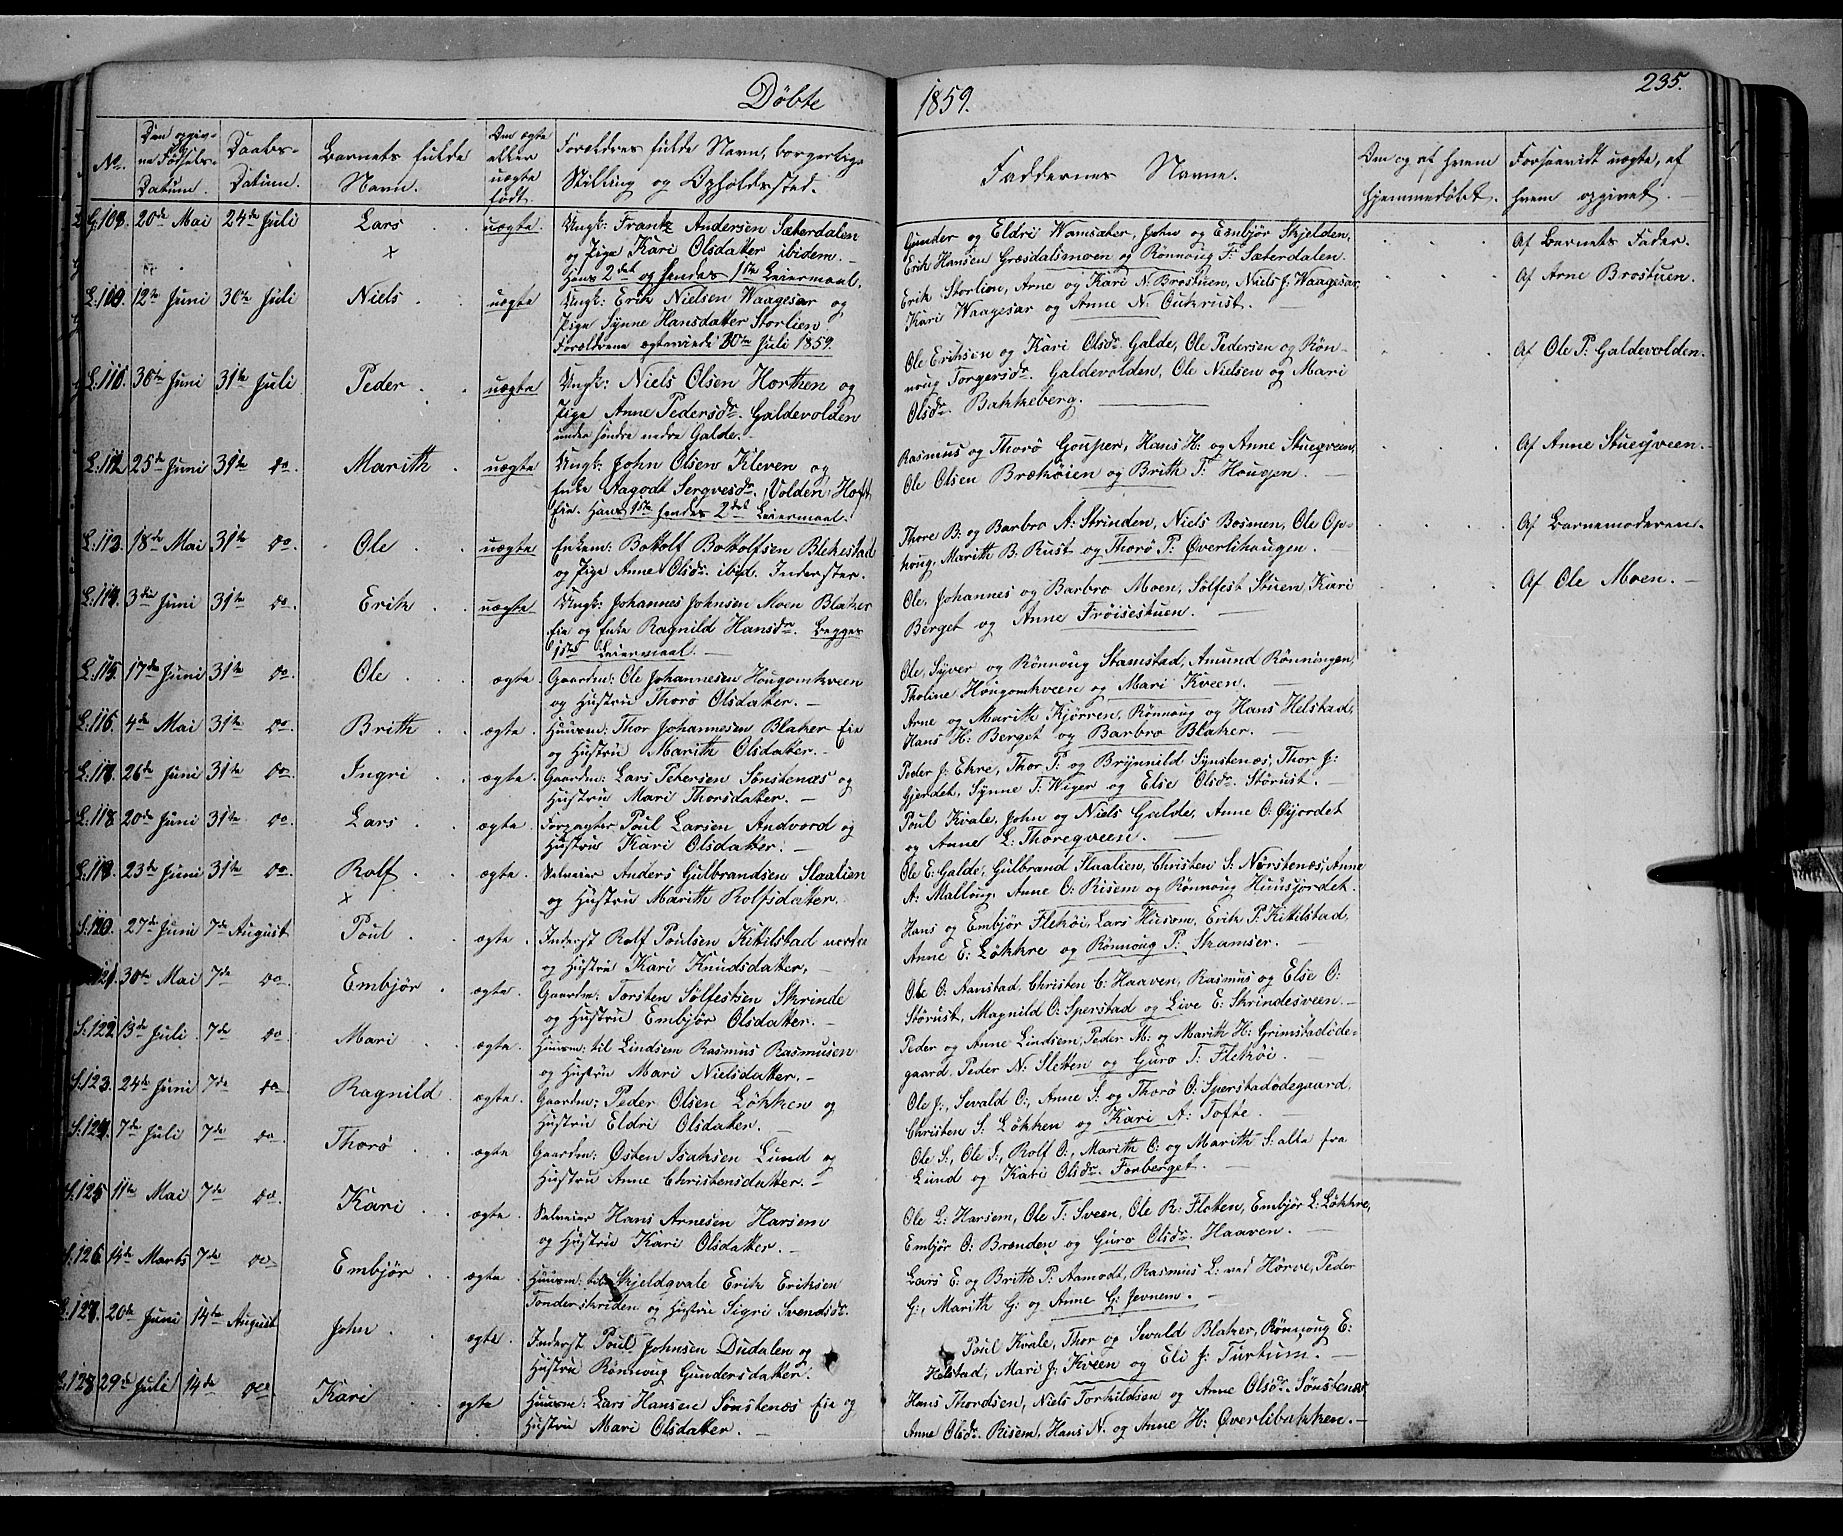 Døbte
1859.
235.
No.
Den opgiv-
ne Fødsels-
Datum.
Daabs-
Datum.
Barnets fulde
Navn.
Om ægte
eller
uægte
født.
Forældres fulde Navn, borgerlige
Stilling og Opholdssted.
Faddernes Navne.
Om og af hvem
hjemmedøbt.
Forsaavidt uægte, af
hvem opgivet.
L. 108. 20de Mai 24de Juli Lars uægte Ungk: Frantz Andersen Sæterdalen
og Pige Kari Olsdatter ibidem.
Hans 2det og hendes 1ste Leiermaal.
Gunder og Eldri Vamsæter, John og Embjør Skjelden,
Erik Hansen Græsdalsmoen og Rønnoug F. Sæterdalen.
Af Barnets Fader.
L. 109. 12te Juni 30te Juli Niels uægte Ungk: Erik Nielsen Waagesar og
Pige Synne Hansdatter Storlien.
Forældrene ægteviede 30te Juli 1859.
Erik Storlien, Arne og Kari N. Brostuen, Niels J. Waagesar,
Kari Waagesar og Anne N. Cukrust.
Af Arne Brostuen.
L. 110. 30te Juni 31te Juli Peder uægte Ungk: Niels Olsen Horthen og
Pige Anne Pedersdr. Galdevolden
under søndre nedre Galde.
Ole Eriksen og Kari Olsdr. Galde, Ole Pedersen og Røn-
noug Torgersdr. Galdevolden, Ole Nielsen og Mari
Olsdr. Bakkeberg.
Af Ole P. Galdevolden.
L. 112. 25de Juni 31te do Marith uægte Ungk: John Olsen Kleven og
Enke Aagodt Sergvesdr. Volden, Hoft
Eie. Hans 1ste hendes 2det Leiermaal.
Rasmus og Thorø Gouper, Hans H: og Anne Stuegveen,
Ole Olsen Brækøien og Brith T: Hougen.
Af Anne Stuegveen.
L. 113. 18de Mai 31te do Ole uægte Enkem: Bottolf Bottolfsen Blekestad
og Pige Anne Olsdr. ibid. Inderster.
Thore B: og Barbro A: Strinden, Niels Bosmen, Ole Op-
houg, Marith B. Rust og Thorø P: Øverlihaugen.
Af Barnemoderen.
L. 114. 3die Juni 31te do. Erik uægte Ungk: Johannes Johnsen Moen Blaker
Eie og Enke Ragnild Hansdr. Begges
1ste Leiermaal.
Ole, Johannes og Barbro Moen, Solfest Stuen, Kari
Berget og Anne Frøisestuen.
Af Ole Moen.
L. 115. 17de Juni 31te do. Ole ægte Gaardm: Ole Johannesen Hougomkveen
og Hustru Thorø Olsdatter.
Ole, Syver og Rønnoug Stamstad, Amund Rønningen,
Tholine Hougomkveen og Mari Kveen.
L. 116. 4de Mai 31te do. Brith ægte. Huusm: Thor Johannesen Blaker Eie
og Hustru Marith Olsdatter.
Arne og Marith Kjørren, Rønnoug og Hans Helstad,
Hans H: Berget og Barbro Blaker.
L. 117. 26de Juni 31te do. Ingri ægte. Gaardm: Lars Petersen Sønstenæs og
Hustru Mari Thorsdatter.
Peder J: Ekre, Thor P: og Brynnild Synstenæs, Thor J:
Gjerdet, Synne T: Wiger og Else Olsdr. Storust.
L. 118 20de Juni 31te do. Lars ægte Forpagter Poul Larsen Andvord og
Hustru Kari Olsdatter.
Poul Kvale, John og Niels Galde, Anne O: Øijordet
og Anne L: Thoregveen.
L. 119. 23de Juni 31te do. Rolf ægte. Selveier Anders Gulbrandsen Slaalien
og Hustru Marith Rolfsdatter.
Ole E: Galde, Gulbrand Slaalien, Christen S: Norstenæs, Anne
A: Malloug, Anne O: Risem og Rønnoug Huusjordet.
S. 120. 27de Juni 7de August Poul ægte. Inderst Rolf Poulsen Kittilstad nordre
og Hustru Kari Knudsdatter.
Hans og Embjør Flekøi, Lars Husom, Erik P: Kittilstad,
Anne E: Løkkre og Rønnoug P: Skamser.
121. 30te Mai 7de do. Embjør ægte. Gaardm: Torsten Sølfestsen Skrinde
og Hustru Embjør Olsdatter.
Ole O: Aanstad, Christen C: Haaven, Rasmus og Else O:
Storust, Magnild O: Sperstad og Live E: Skrindesveen.
S. 122. 13de Juli 7de do. Mari ægte. Huusm: til Lindsem Rasmus Rasmusen
og Hustru Mari Nielsdatter.
Peder og Anne Lindsem, Peder M: og Marith H: Grimstadøde-
gaard, Peder N: Sletten og Guro T: Flekøi.
S. 123. 24de Juni 7de do Ragnild ægte. Gaardm: Peder Olsen Løkken og
Hustru Eldri Olsdatter.
Ole J:, Sevald O:, Anne S: og Thorø O: Sperstadødegaard,
Christen S: Løkken og Kari A: Tofte.
S. 124. 7de Juli 7de do. Thorø ægte Gaardm: Østen Isaksen Lund og
Hustru Anne Christensdatter.
Ole S:, Ole I:, Rolf O:, Marith O: og Marith S: alle fra
Lund og Kari Olsdr. Forberget.
S. 125 11te Mai 7de do. Kari ægte Selveier Hans Arnesen Harsem
og Hustru Kari Olsdatter.
Ole L: Harsem, Ole T: Sveen, Ole R: Flotten, Embjør L: Løkkre,
Embjør O: Brenden og Guro Olsdr. Haaven.
S. 126. 14de Marts 7de do. Embjør ægte Huusm: til Skjeldqvale Erik Eriksen
Tonderskriden og Hustru Sigri Svendsdr.
Lars E: og Britte P: Aamodt, Rasmus L: ved Hørve, Peder
G:, Marith G: og Anne G: Jevnem.
L. 127. 20de Juni 14te August John ægte Inderst Poul Johnsen Dudalen og
Hustru Rønnoug Gundersdatter.
Poul Kvale, Thor og Sevald Blaker, Rønnoug E:
Helstad, Mari J: Kveen og Eli J: Turtum.
L. 128 29de Juli 14de do. Kari ægte Huusm: Lars Hansen Sønstenæs Eie og
Hustru Mari Olsdatter.
Hans Thordsen, Niels Torkildsen og Anne Olsdr. Sønstenæs,
Anne Olsdr. Risem, Hans N. og Anne H: Øverlibakken.